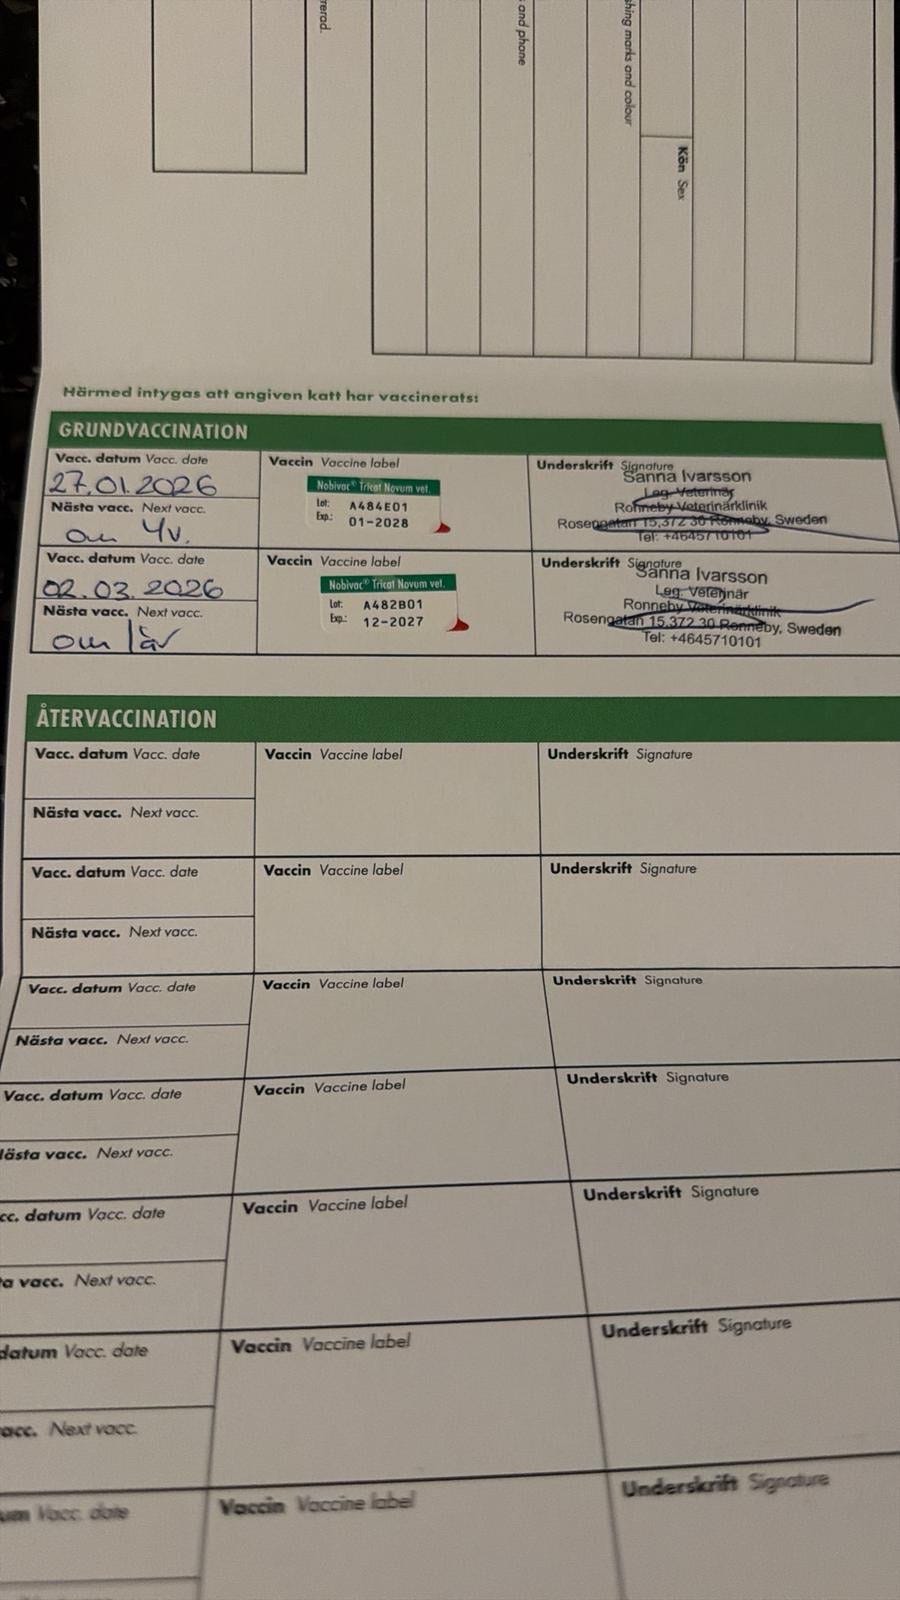 rerad.
and phone
hing marks and colour
Kön Sex
Härmed intygas att angiven katt har vaccinerats:
GRUNDVACCINATION
Vacc. datum Vacc. date
27.01.2026
Nästa vacc. Next vacc.
om 4v.
Vaccin Vaccine label
Nobivac® Tricat Novum vet.
Lot: A484E01
Exp.: 01-2028
Underskrift Signature
Sanna Ivarsson
Leg. Veterinär
Ronneby Veterinärklinik
Rosengatan 15,372 30 Ronneby, Sweden
Tel: +4645710101
Vacc. datum Vacc. date
02.03.2026
Nästa vacc. Next vacc.
om 1år
Vaccin Vaccine label
Nobivac® Tricat Novum vet.
Lot: A482B01
Exp.: 12-2027
Underskrift Signature
Sanna Ivarsson
Leg. Veterinär
Ronneby Veterinärklinik
Rosengatan 15,372 30 Ronneby, Sweden
Tel: +4645710101
ÅTERVACCINATION
Vacc. datum Vacc. date
Nästa vacc. Next vacc.
Vaccin Vaccine label
Underskrift Signature
Vacc. datum Vacc. date
Nästa vacc. Next vacc.
Vaccin Vaccine label
Underskrift Signature
Vacc. datum Vacc. date
Nästa vacc. Next vacc.
Vaccin Vaccine label
Underskrift Signature
Vacc. datum Vacc. date
lästa vacc. Next vacc.
Vaccin Vaccine label
Underskrift Signature
cc. datum Vacc. date
ta vacc. Next vacc.
Vaccin Vaccine label
Underskrift Signature
datum Vacc. date
acc. Next vacc.
Vaccin Vaccine label
Underskrift Signature
um Vacc. date
Vaccin Vaccine label
Underskrift Signature